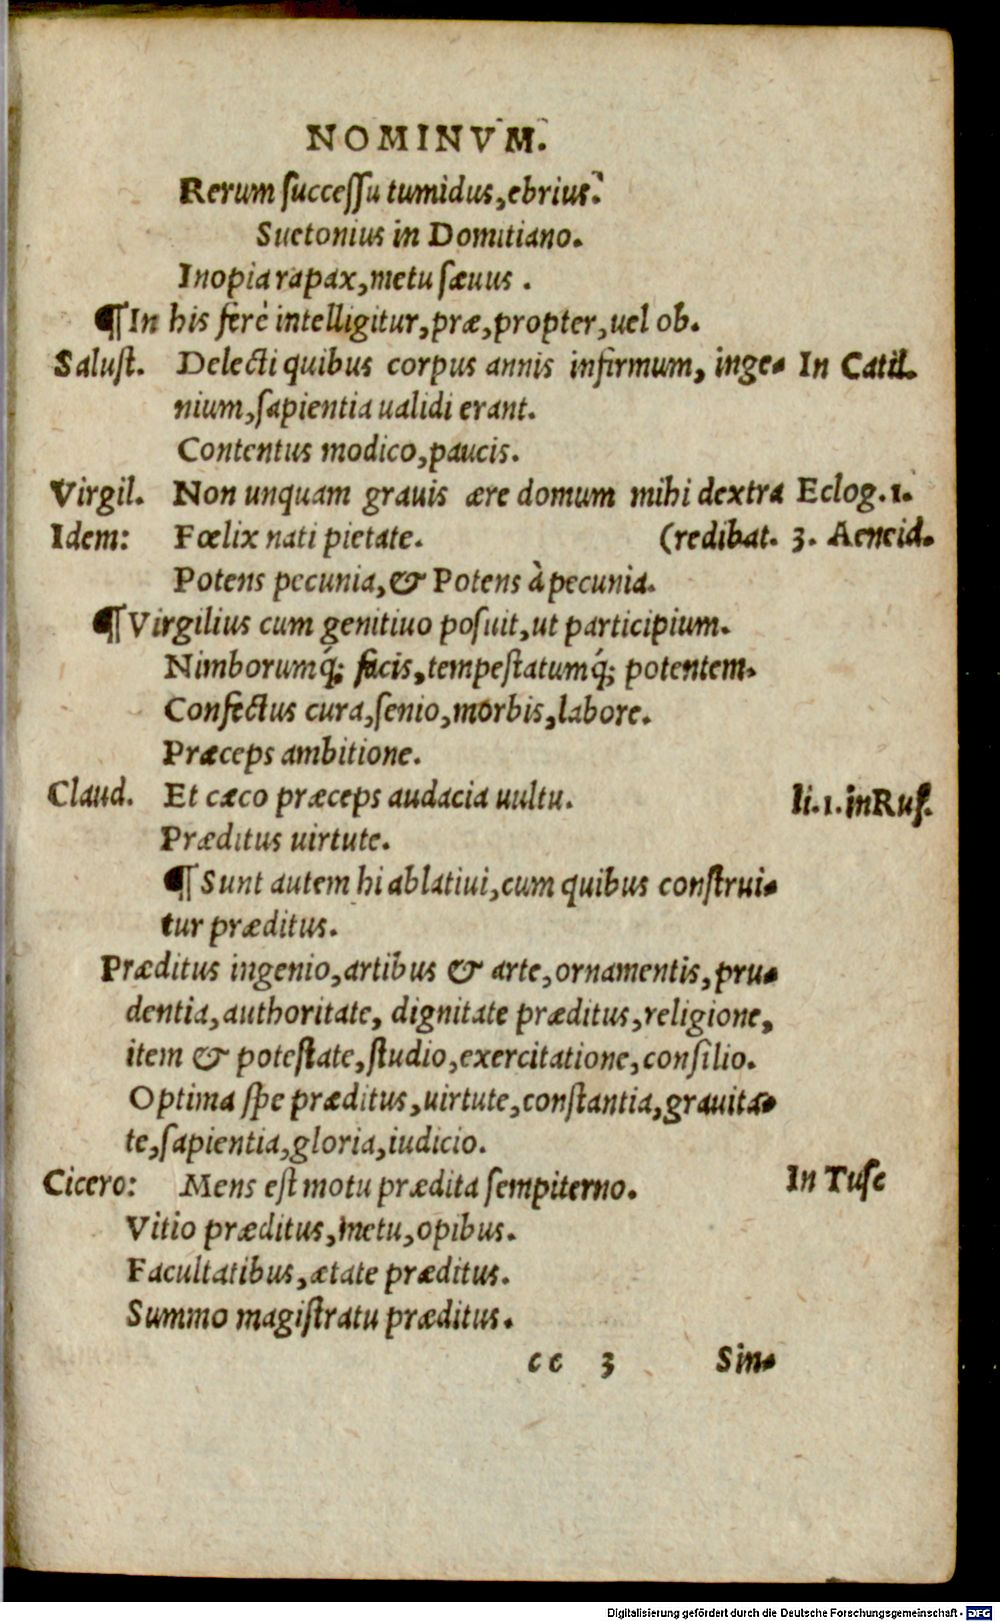 NOMINVM.
Rerum ſucceſſu tumidus,ebrius.
Suetonius in Domitiano.
Inopia rapax,metu ſæuus .
¶In his ferè intelligitur,præ,propter,uel ob.
Saluſt. Delecti quibus corpus annis infirmum, inge- In Catil.
nium,ſapientia ualidi erant.
Contentus modico,paucis.
Virgil. Non unquam grauis ære domum mihi dextra Eclog.1.
Idem: Fœlix nati pietate. (redibat. 3. Aeneid.
Potens pecunia,& Potens à pecunia.
¶Virgilius cum genitiuo poſuit,ut participium.
Nimborumq́; facis,tempeſtatumq́; potentem.
Confectus cura,ſenio,morbis,labore.
Præceps ambitione.
Claud. Et cæco præceps audacia uultu. li.1.inRuf.
Præditus uirtute.
¶Sunt autem hi ablatiui,cum quibus conſtrui-
tur præditus.
Præditus ingenio,artibus & arte,ornamentis,pru-
dentia,authoritate, dignitate præditus,religione,
item & poteſtate,ſtudio,exercitatione,conſilio.
Optima ſpe præditus,uirtute,conſtantia,grauita-
te,ſapientia,gloria,iudicio.
Cicero: Mens eſt motu prædita ſempiterno. In Tuſc
Vitio præditus,metu,opibus.
Facultatibus,ætate præditus.
Summo magiſtratu præditus.
cc 3 Sin-
Digitalisierung gefördert durch die Deutsche Forschungsgemeinschaft - DFG